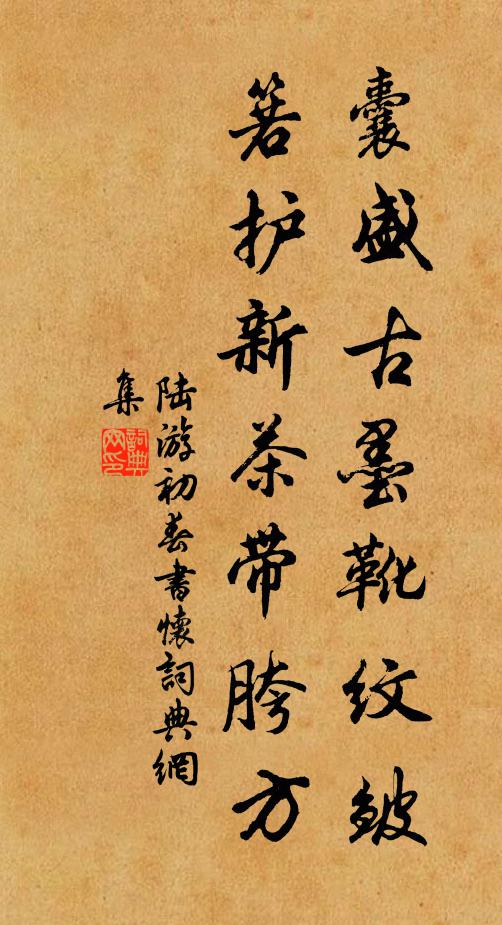 囊盛古墨靴纹皴
箬护新茶带胯方
陆游初春書懷詞典網
集
詞典
网印